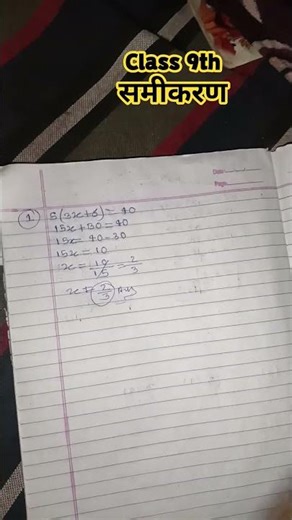 Class 9th
समीकरण
Date:
Page:
① 5(3x+6)=40
15x+30=40
15x=40-30
15x=10
x=10/15=2/3
x=2/3 Ans